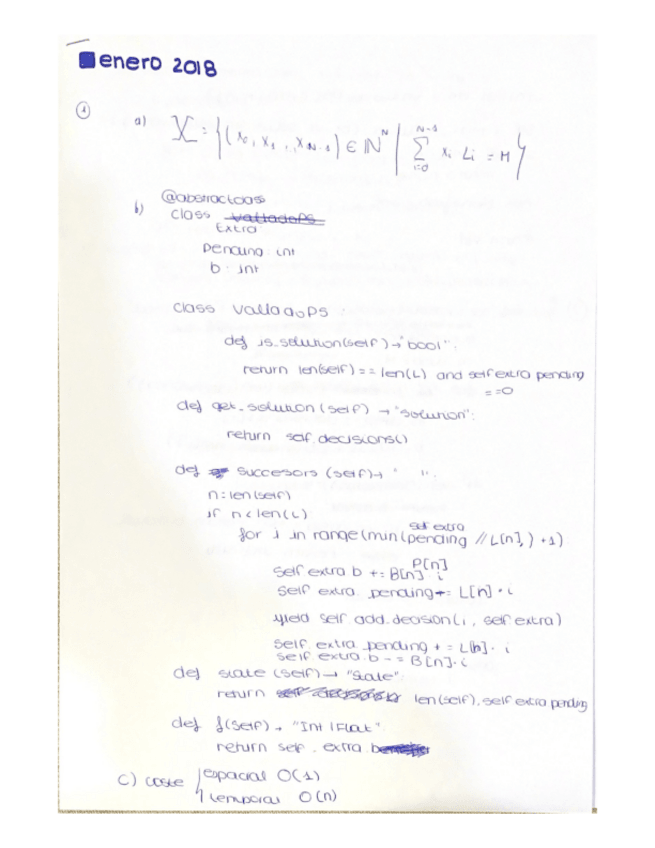 enero 2018
① a) X = {(x0, x1, , xN-1) ∈ ℕ^N | ∑_{i=0}^{N-1} xi Li = M}
b) @abstractclass
class valladoPS
Extra
Pending int
b: int
class ValladoPS :
def is_solution(self) → "bool":
return len(self) == len(L) and self extra pending
==0
def get_solution (self) → "solution":
return self.decisions()
def succesors (self) → " ":
n = len(self)
if n < len(L)
self extra
for i in range(min(pending // L[n], ) +1)
P[n]
self extra b += B[n] · i
self extra. pending += L[n] · i
yield self add.decision(i, self extra)
self extra pending += L[n] · i
self extra.b -= B[n] · i
def state (self) → "State"
return len(self), self extra pending
def f(self) → "Int | Float"
return self . extra. b
c) coste espacial O(1)
temporal O(n)